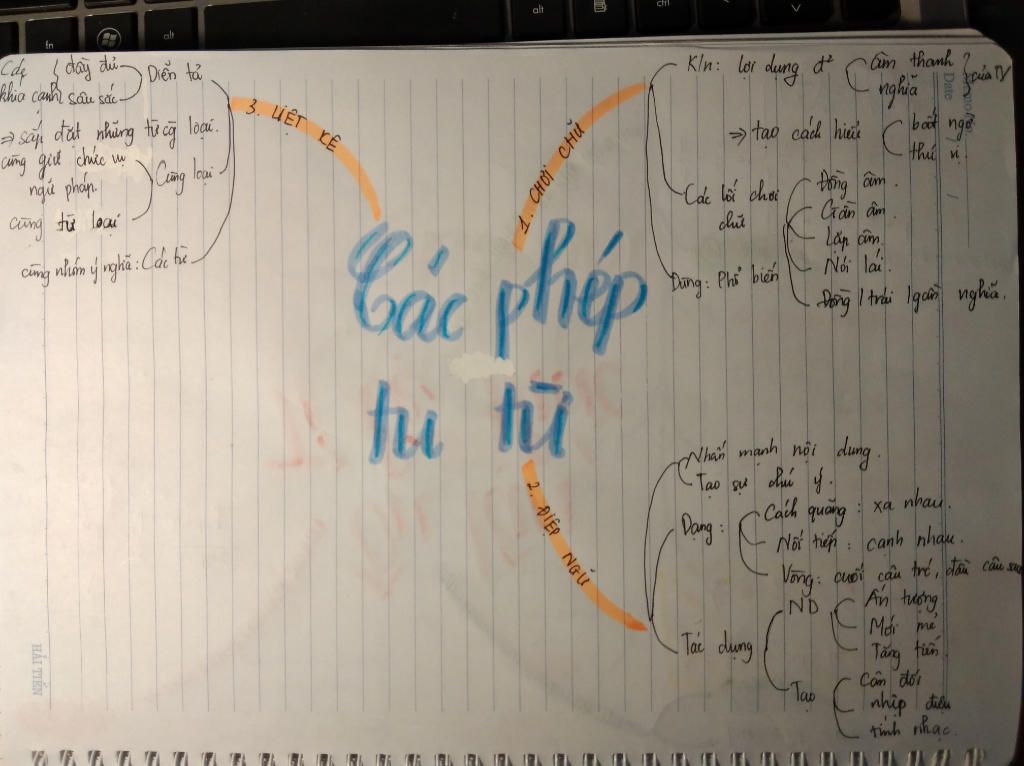 Các phép
tu từ
1. CHƠI CHỮ
K/n: lợi dụng đ²
âm thanh
nghĩa
của TV
⇒ tạo cách hiểu
bất ngờ
thú vị.
Các lối chơi
chữ
Đồng âm.
Gần âm.
Lặp âm.
Nói lái.
Đồng / trái / gần nghĩa.
Dùng: Phổ biến
2. ĐIỆP NGỮ
Nhấn mạnh nội dung.
Tạo sự chú ý.
Dạng:
Cách quãng: xa nhau.
Nối tiếp: cạnh nhau.
Vòng: cuối câu trc, đầu câu sau
Tác dụng
ND
Ấn tượng
Mới mẻ
Tăng tiến.
Tạo
Cân đối
nhịp điệu
tính nhạc.
3. LIỆT KÊ
Diễn tả
đầy đủ
sâu sắc
Các
khía cạnh
⇒ sắp đặt những từ cg loại.
Cùng loại
cùng giữ chức vụ
ngữ pháp.
cùng từ loại
cùng nhóm ý nghĩa: Các từ
Date
HẢI TIẾN
fn
alt
alt
ctrl